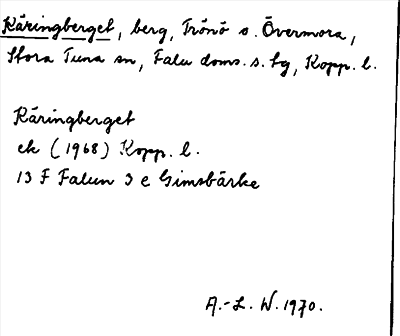 Käringberget, berg, Trönö o. Övermora,
Stora Tuna sn, Falu doms. s. tg, Kopp. l.
Käringberget
ek (1968) Kopp. l.
13 F Falun 3 e Gimsbärke
A.-L. W. 1970.